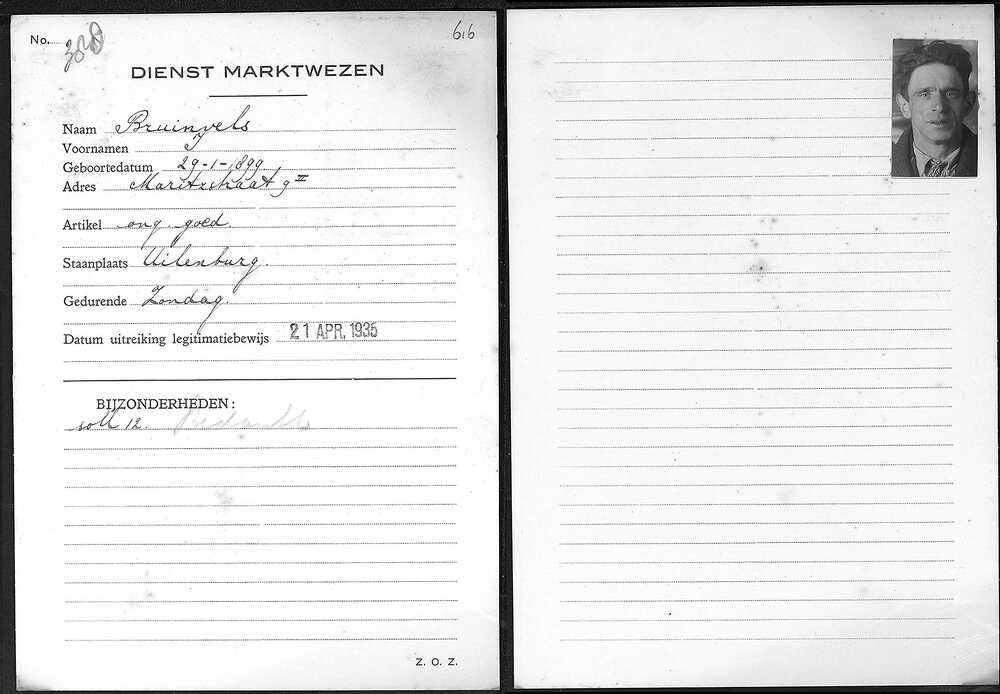 No. 308
616
DIENST MARKTWEZEN
Naam Bruinvels
Voornamen J
Geboortedatum 29-1-1899
Adres Maritzstraat 9 II
Artikel ong. goed.
Staanplaats Uilenburg.
Gedurende Zondag.
Datum uitreiking legitimatiebewijs 21 APR. 1935
BIJZONDERHEDEN:
soll 12.
Z. O. Z.